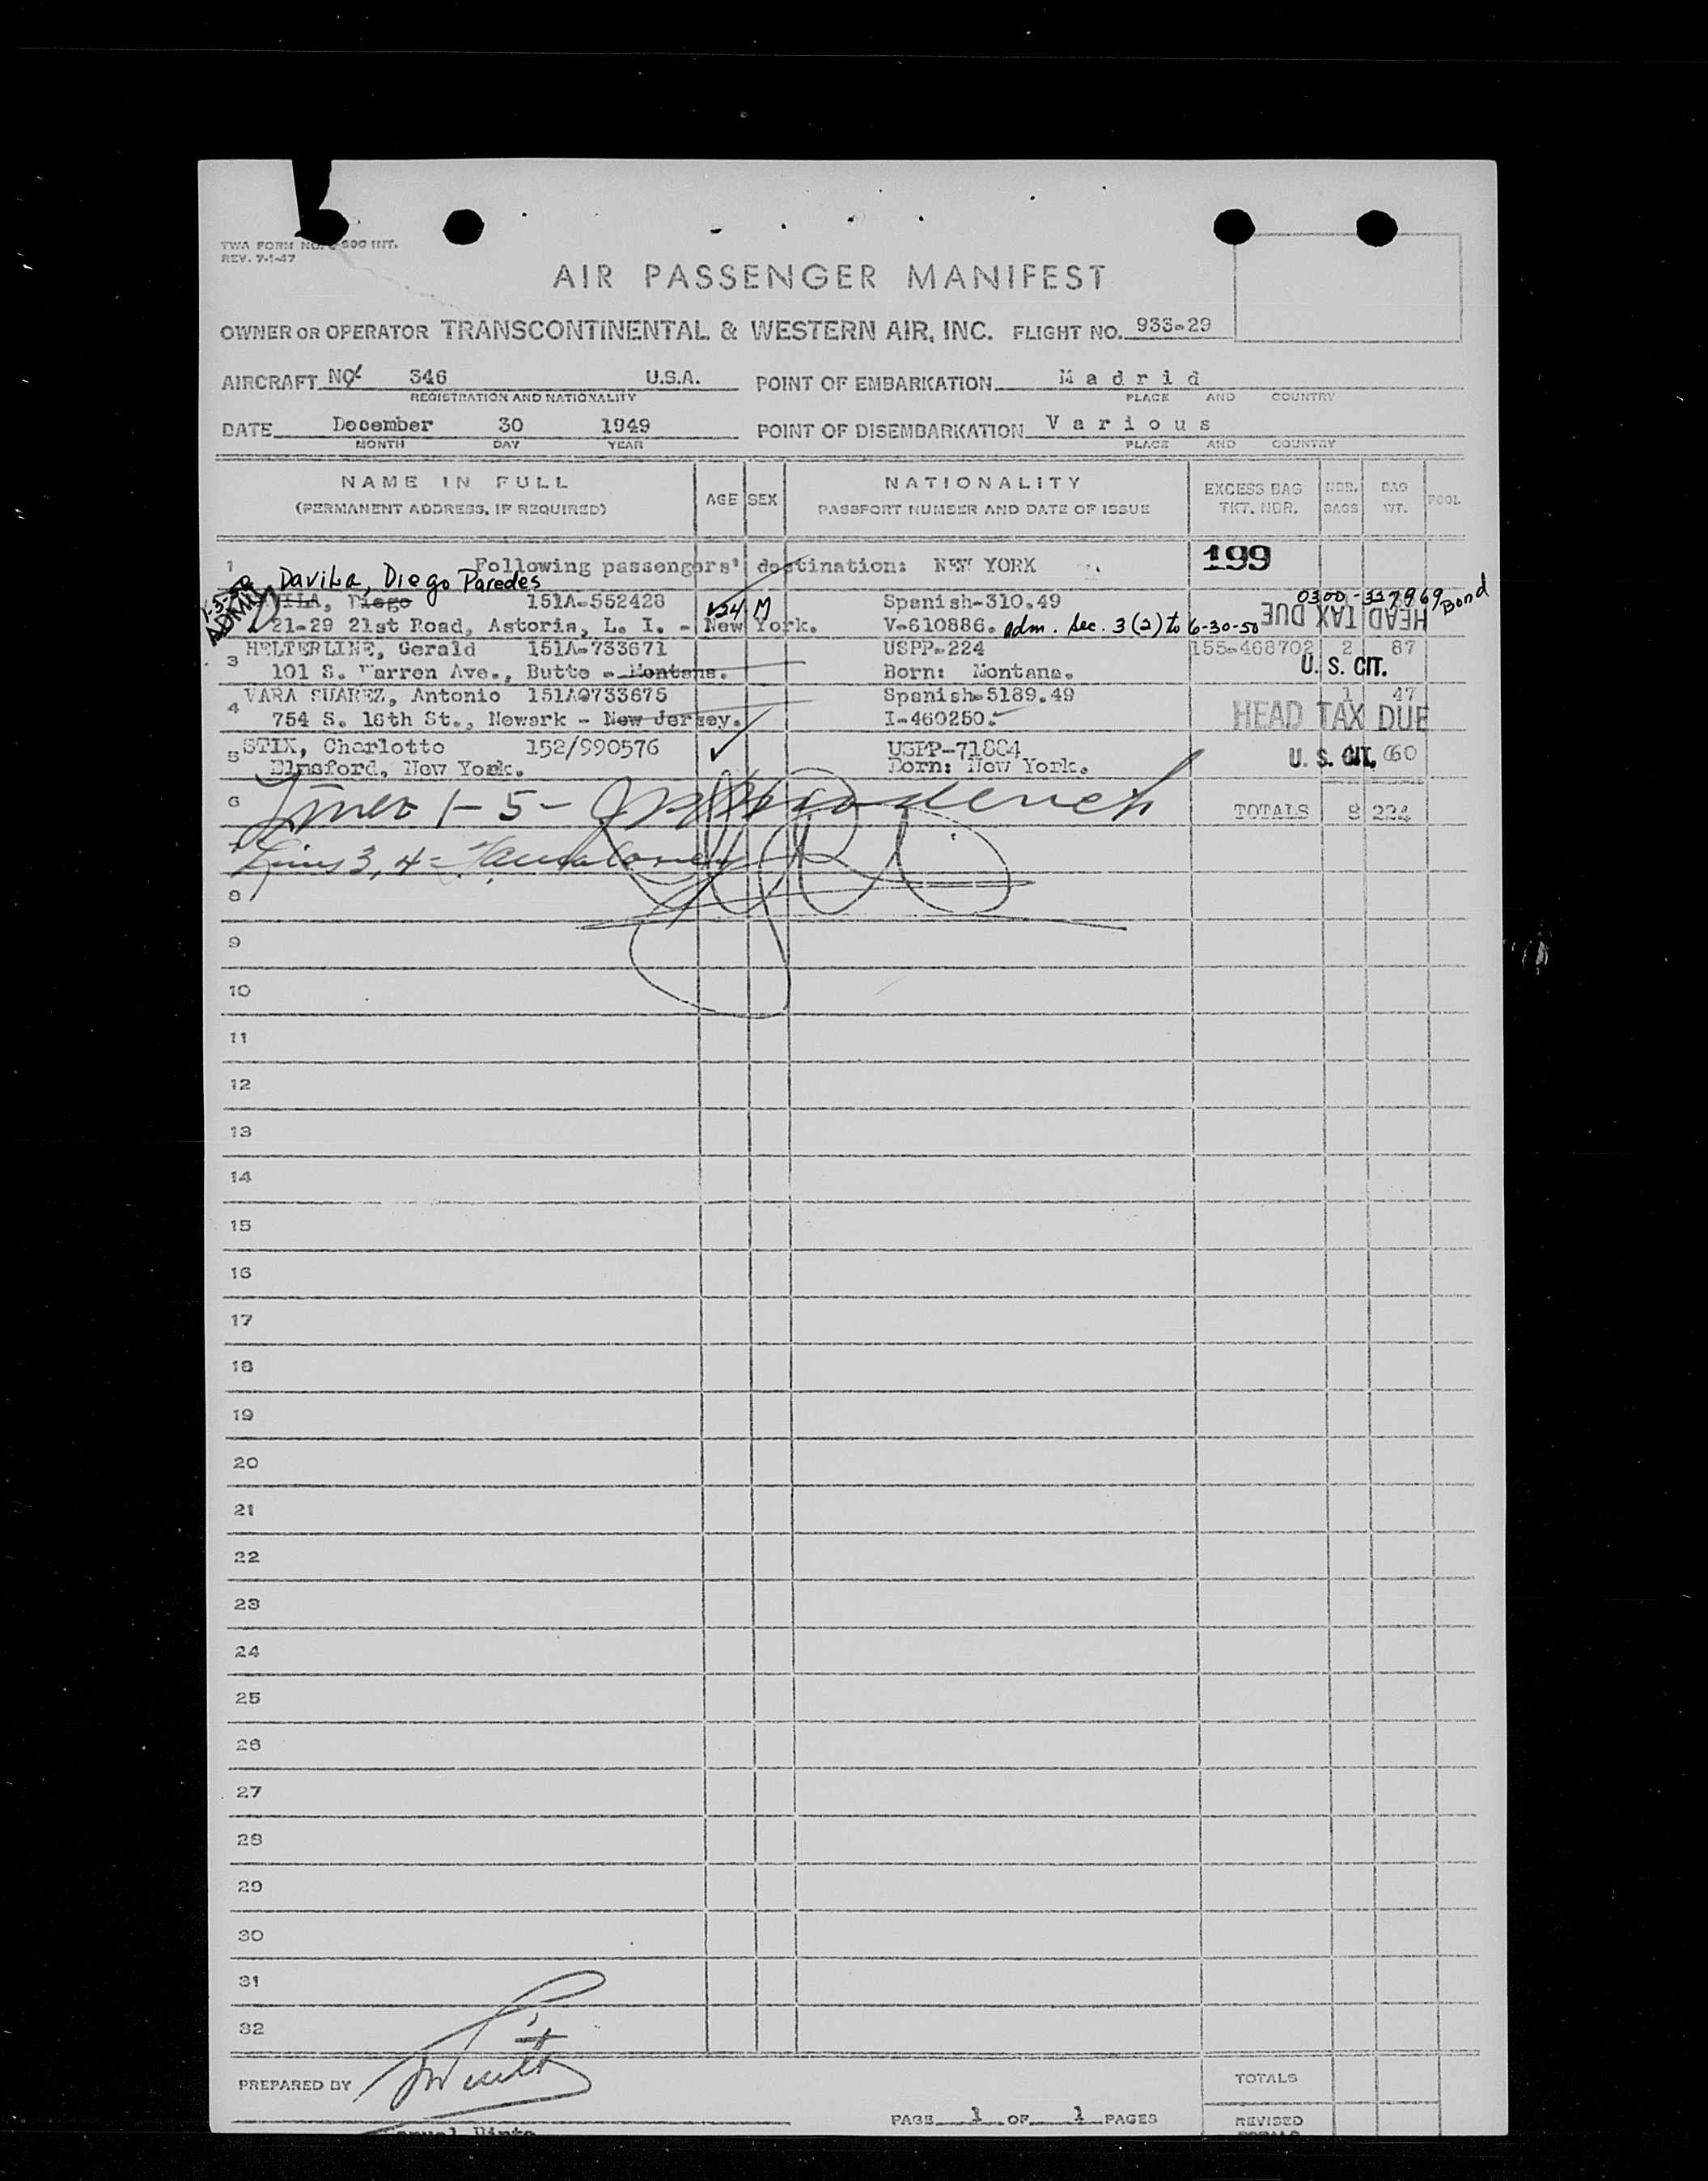 TWA FORM NO. -300 INT.
REV. 7-1-47
AIR PASSENGER MANIFEST
OWNER OR OPERATOR TRANSCONTINENTAL & WESTERN AIR, INC. FLIGHT NO. 933-29
AIRCRAFT No. 346 U.S.A. POINT OF EMBARKATION Madrid
REGISTRATION AND NATIONALITY PLACE AND COUNTRY
DATE December 30 1949 POINT OF DISEMBARKATION Various
MONTH DAY YEAR PLACE AND COUNTRY
NAME IN FULL AGE SEX NATIONALITY EXCESS BAG NBR. BAG POOL
(PERMANENT ADDRESS, IF REQUIRED) PASSPORT NUMBER AND DATE OF ISSUE TKT. NBR. BAGS WT.
1 Following passengers' destination: NEW YORK 199
Davila, Diego Paredes
1-3-50 ADMIT
VILA, Diego 151A-552428 34 M Spanish-310.49 0300-337969 Bond
21-29 21st Road, Astoria, L. I. - New York. V-610886. adm. Sec. 3(2) to 6-30-50 HEAD TAX DUE
3 HELTERLINE, Gerald 151A-733671 USPP-224 155-468702 2 87
101 S. Warren Ave., Butte - Montana. Born: Montana. U. S. CIT.
4 VARA SUAREZ, Antonio 151A@733675 Spanish-5189.49 1 47
754 S. 16th St., Newark - New Jersey. I-460250. HEAD TAX DUE
5 STIX, Charlotte 152/990576 USPP-71884 U. S. CIT. 60
Elmsford, New York. Born: New York.
6 Lines 1-5- TOTALS 8 224
7 Lines 3, 4-
8
9
10
11
12
13
14
15
16
17
18
19
20
21
22
23
24
25
26
27
28
29
30
31
32
PREPARED BY TOTALS
PAGE 1 OF 1 PAGES REVISED